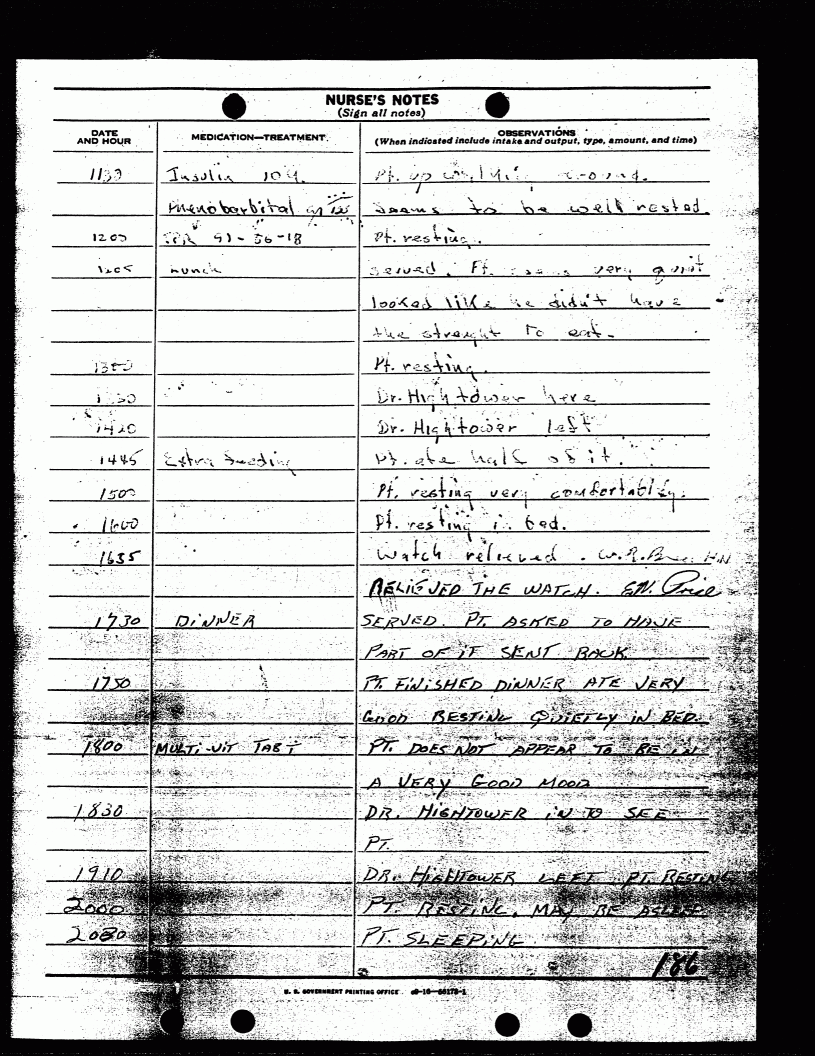 NURSE'S NOTES
(Sign all notes)
DATE AND HOUR MEDICATION—TREATMENT OBSERVATIONS
(When indicated include intake and output, type, amount, and time)
1130 Insulin 10 u. Pt. up around.
Phenobarbital seems to be well rested.
1200 TPR 91-56-18 Pt. resting.
1205 Lunch served. Pt. seems very quiet
looked like he didn't have
the streaght to eat.
1300 Pt. resting.
Dr. Hightower here
1420 Dr. Hightower left
1445 Extra feeding Pt. ate half of it.
1500 Pt. resting very comfortabley.
1600 Pt. resting in bed.
1635 Watch relieved. W.R. HN
RELIEVED THE WATCH. Price
1730 DINNER SERVED. PT. ASKED TO HAVE
PART OF IT SENT BACK
1750 PT. FINISHED DINNER ATE VERY
GOOD RESTING QUIETLY IN BED.
1800 MULTI-VIT TAB I PT. DOES NOT APPEAR TO BE IN
A VERY GOOD MOOD
1830 DR. HIGHTOWER IN TO SEE
PT.
1910 DR. HIGHTOWER LEFT PT. RESTING
2000 PT. RESTING, MAY BE ASLEEP
2030 PT. SLEEPING
186
U. S. GOVERNMENT PRINTING OFFICE